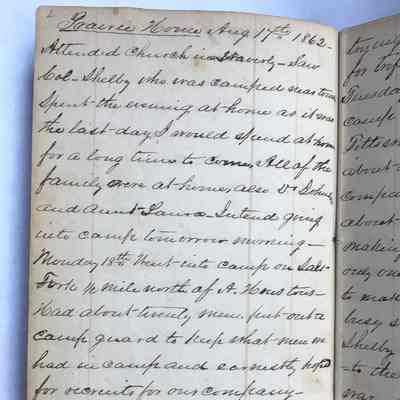 2
Prairie Home Aug 17th 1862-
Attended Church in Waverly - Saw
Col- Shelby who was camped near town
Spent the evening at home as it was
the last day I would spend at home
for a long time to come, All of the
family were at home, also
and Aunt Laura- Intend going
into camp tomorrow morning-
Monday 18th Went into camp on Salt
Fork ½ mile north of A.
Had about twenty men, put out a
camp guard to keep what men we
had in camp and earnestly hoped
for recruits for our company-
for
Tuesday
camp
about
about
making
only one
to mak
busy
Shelby
to the